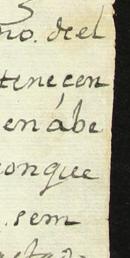 no. de el
tenecen
en abe
conque
sem